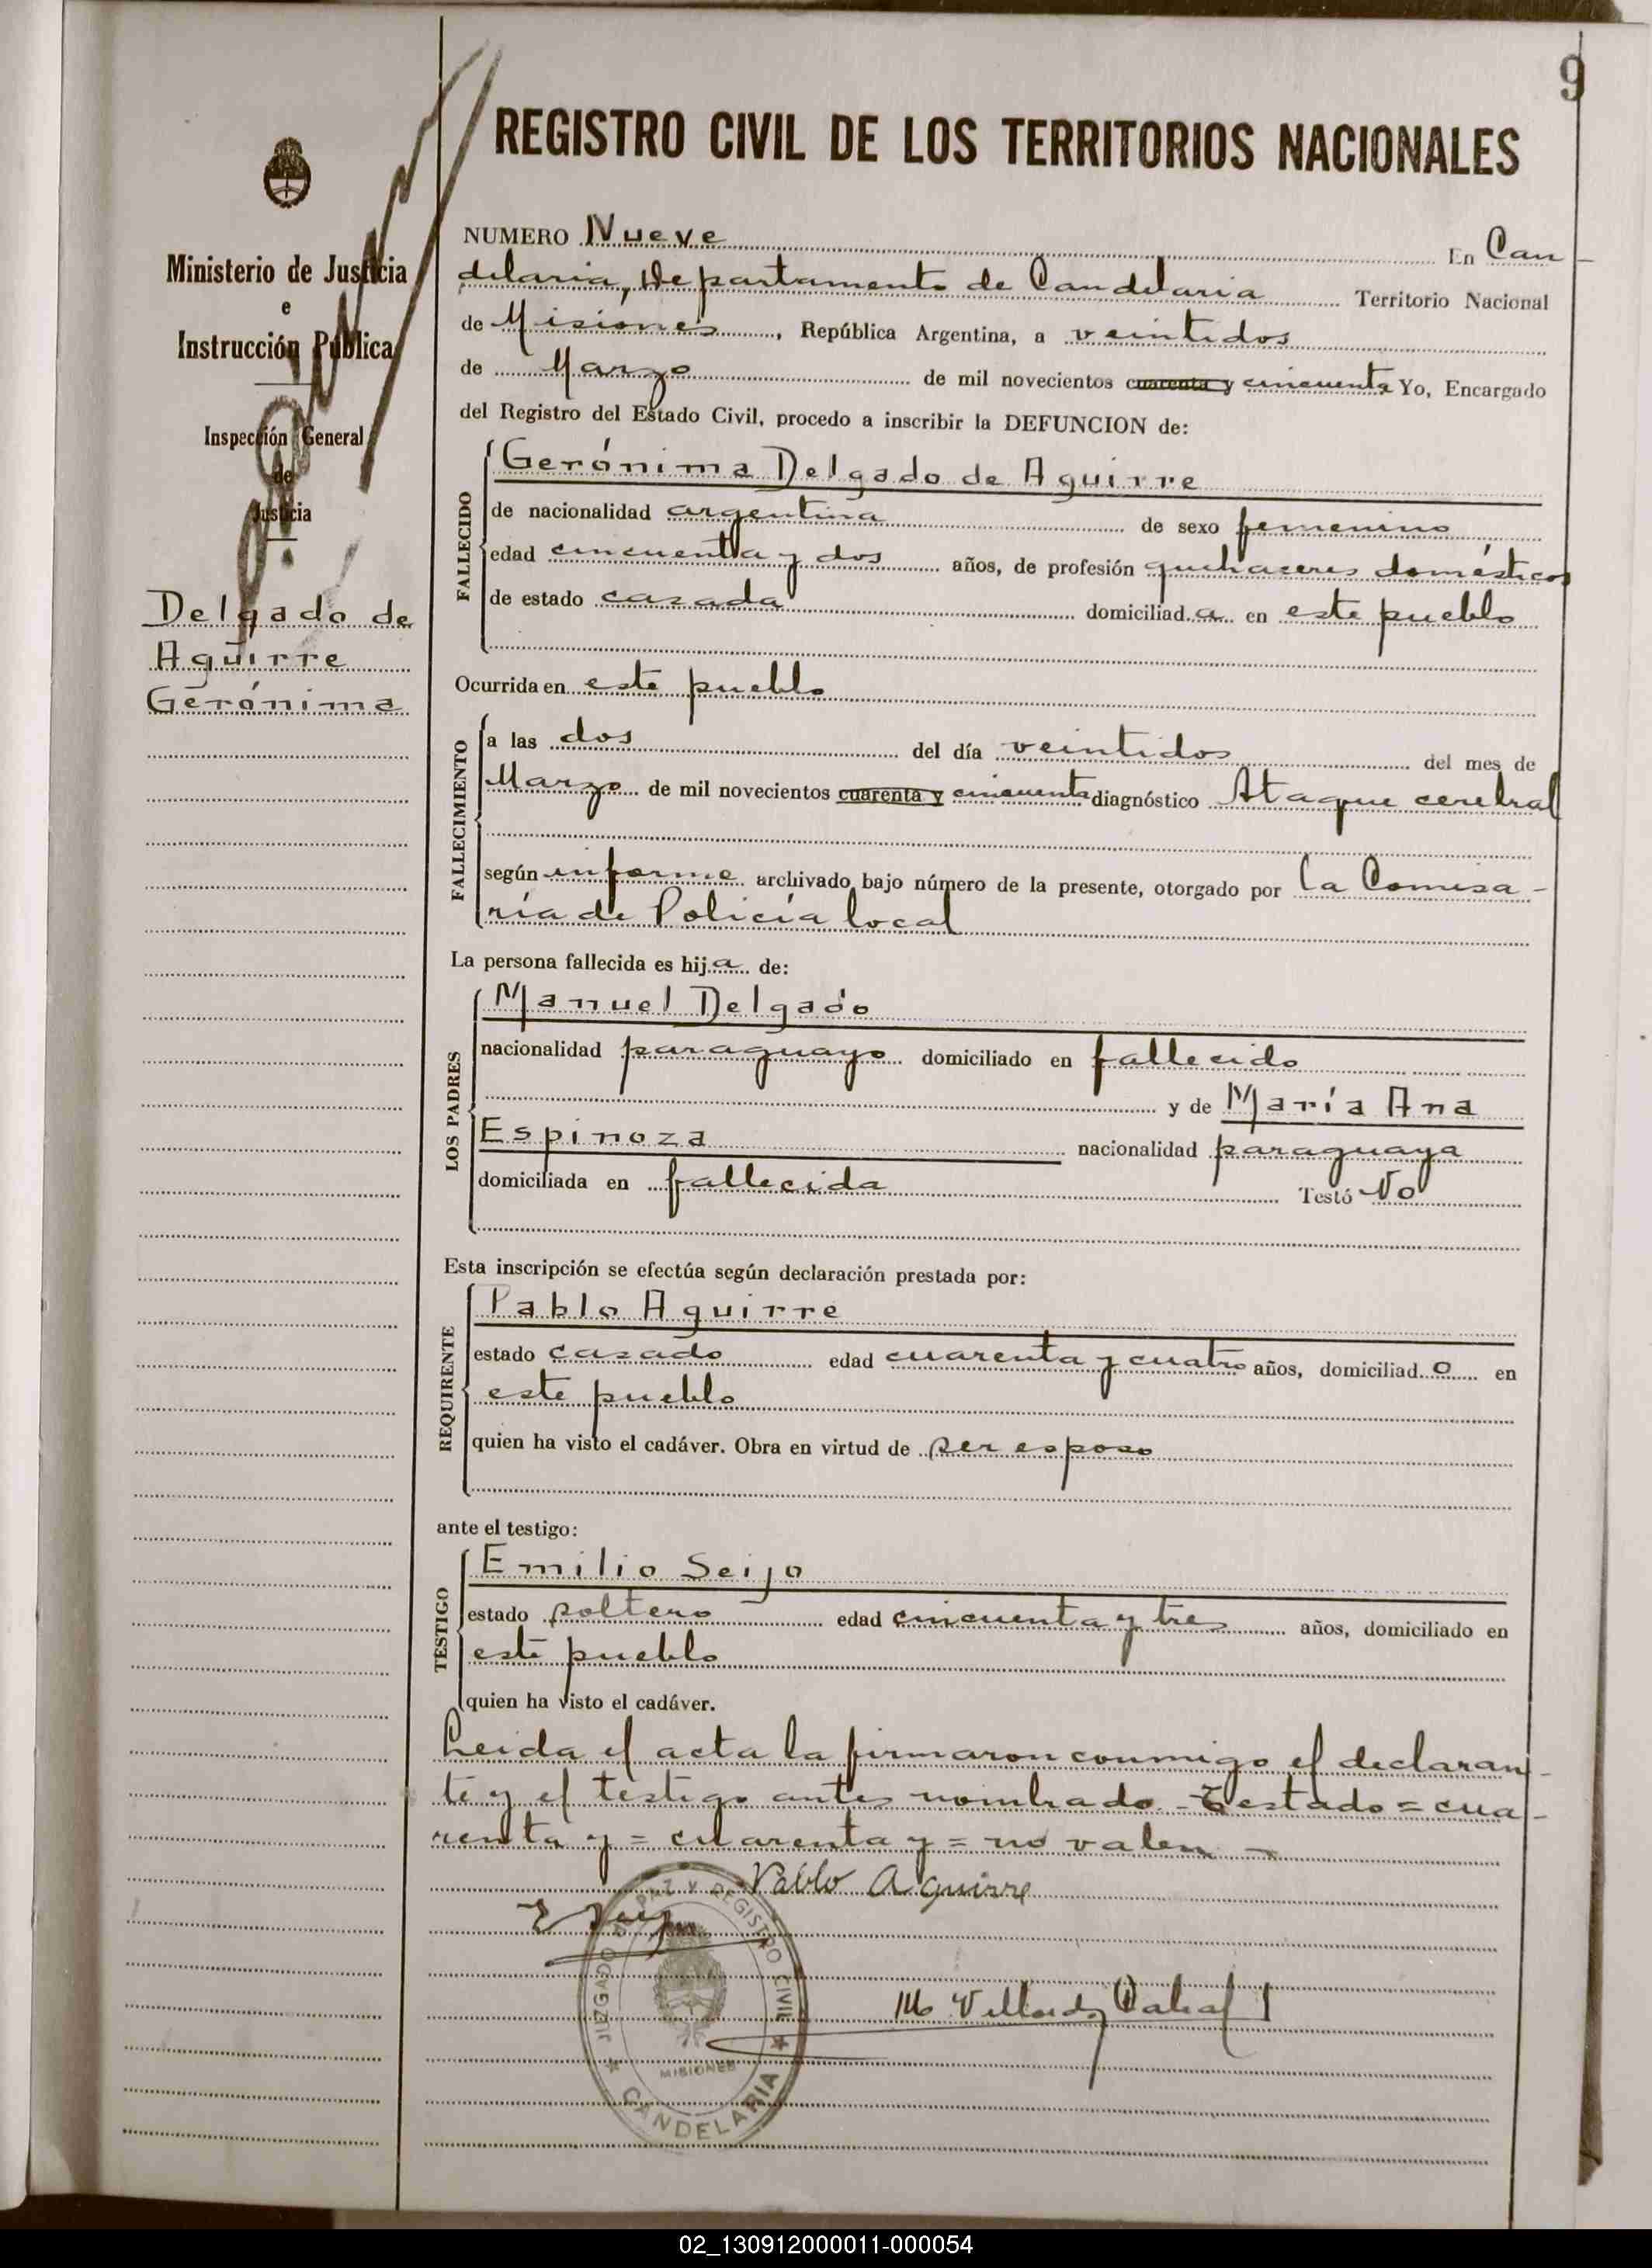 9
REGISTRO CIVIL DE LOS TERRITORIOS NACIONALES
Ministerio de Justicia
e
Instrucción Pública
Inspección General
de
Justicia
Delgado de
Aguirre
Gerónima
NUMERO Nueve En Can-
delaria, Departamento de Candelaria Territorio Nacional
de Misiones, República Argentina, a veintidos
de Marzo de mil novecientos cuarenta y cincuenta Yo, Encargado
del Registro del Estado Civil, procedo a inscribir la DEFUNCION de:
FALLECIDO
Gerónima Delgado de Aguirre
de nacionalidad argentina de sexo femenino
edad cincuenta y dos años, de profesión quehaceres domésticos
de estado casada domiciliada en este pueblo
Ocurrida en este pueblo
FALLECIMIENTO
a las dos del día veintidos del mes de
Marzo de mil novecientos cuarenta y cincuenta diagnóstico Ataque cerebral
según informe archivado bajo número de la presente, otorgado por la Comisa-
ría de Policía local
La persona fallecida es hija de:
LOS PADRES
Manuel Delgado
nacionalidad paraguayo domiciliado en fallecido
y de María Ana
Espinoza nacionalidad paraguaya
domiciliada en fallecida Testó No
Esta inscripción se efectúa según declaración prestada por:
REQUIRENTE
Pablo Aguirre
estado casado edad cuarenta y cuatro años, domiciliado en
este pueblo
quien ha visto el cadáver. Obra en virtud de ser esposo
ante el testigo:
TESTIGO
Emilio Seijo
estado soltero edad cincuenta y tres años, domiciliado en
este pueblo
quien ha visto el cadáver.
Leida el acta la firmaron conmigo el declaran-
te y el testigo antes nombrado - Testado = cua-
renta y = cuarenta y = no valen -
Pablo Aguirre
E Seijo
JUZGADO DE PAZ Y REGISTRO CIVIL
MISIONES
CANDELARIA
02_130912000011-000054